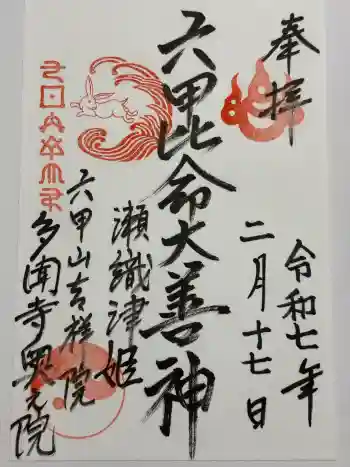 奉拝
令和七年
二月十七日
六甲比命大善神
瀬織津姫
六甲山吉祥院
多聞寺奥之院